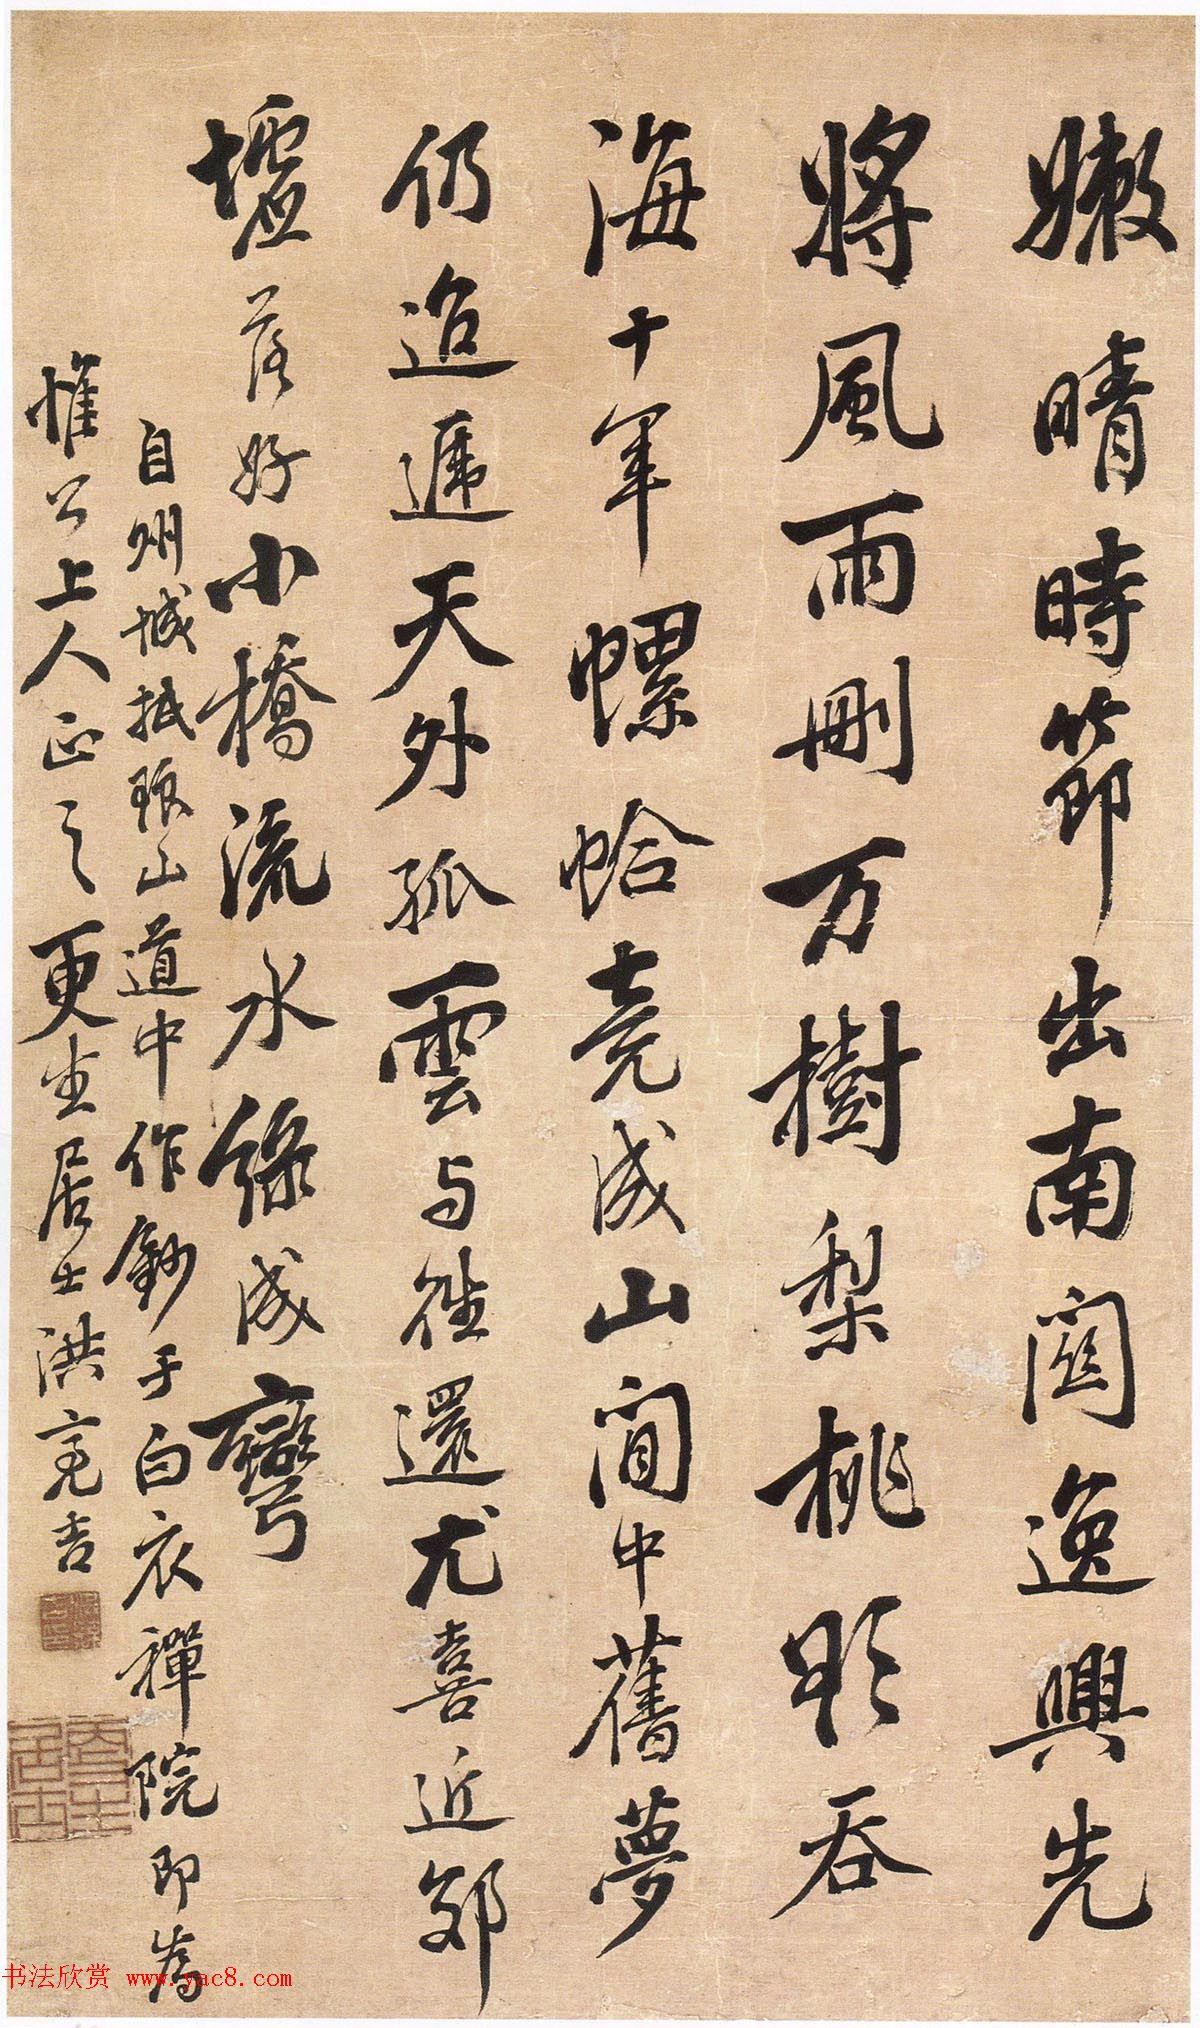 嫩晴時節出南關逸興先
將風雨刪万樹梨桃影吞
海十年螺蛤竟成山間中舊夢
仍迢遞天外孤雲与往還尤喜近郊
墟落好小橋流水綠成彎
自州城抵狼山道中作鈔于白衣禪院即為
惟公上人正之更生居士洪亮吉
更生居士
书法欣赏 www.yac8.com